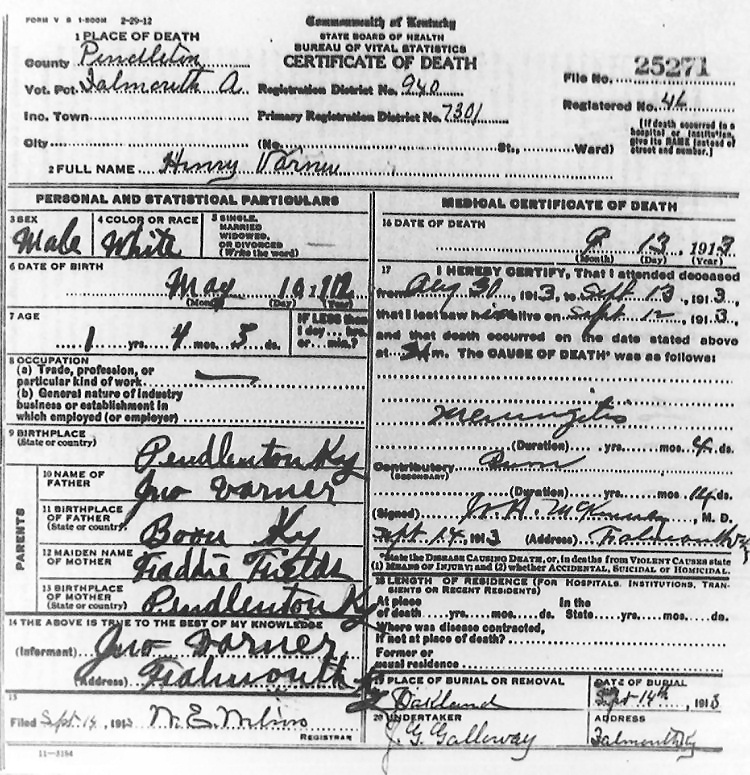 FORM V S 1-500M 2-29-12
Commonwealth of Kentucky
STATE BOARD OF HEALTH
BUREAU OF VITAL STATISTICS
CERTIFICATE OF DEATH
1 PLACE OF DEATH
County Pendleton
Vot. Pct. Falmouth A.
Inc. Town
City
Registration District No. 940
Primary Registration District No. 7301
(No. St., Ward)
File No. 25271
Registered No. 46
(If death occurred in a hospital or institution, give its NAME instead of street and number.)
2 FULL NAME Henry Varner
PERSONAL AND STATISTICAL PARTICULARS
3 SEX
Male
4 COLOR OR RACE
White
5 SINGLE, MARRIED WIDOWED, OR DIVORCED (Write the word)
6 DATE OF BIRTH
May 10 1912
(Month) (Day) (Year)
7 AGE
1 yrs. 4 mos. 3 ds.
IF LESS than 1 day... hrs. or... min.?
8 OCCUPATION
(a) Trade, profession, or particular kind of work —
(b) General nature of industry business or establishment in which employed (or employer)
9 BIRTHPLACE
(State or country)
Pendleton Ky
PARENTS
10 NAME OF FATHER
Jno Varner
11 BIRTHPLACE OF FATHER
(State or country)
Boon Ky
12 MAIDEN NAME OF MOTHER
Fields
13 BIRTHPLACE OF MOTHER
(State or country)
Pendleton Ky
14 THE ABOVE IS TRUE TO THE BEST OF MY KNOWLEDGE
(Informant) Jno Varner
(Address) Falmouth Ky
15
Filed Sept. 14, 1913
REGISTRAR
11-3184
MEDICAL CERTIFICATE OF DEATH
16 DATE OF DEATH
9 13, 1913
(Month) (Day) (Year)
17 I HEREBY CERTIFY, That I attended deceased
from Aug 30, 1913, to Sept 13, 1913,
that I last saw him alive on Sept 12, 1913,
and that death occurred on the date stated above
at m. The CAUSE OF DEATH* was as follows:
Meningitis
(Duration) yrs. mos. 4 ds.
Contributory Burn
(SECONDARY)
(Duration) yrs. mos. 14 ds.
(Signed) M. D.
Sept. 14, 1913 (Address) Falmouth Ky
*State the DISEASE CAUSING DEATH, or, in deaths from VIOLENT CAUSES state (1) MEANS OF INJURY; and (2) whether ACCIDENTAL, SUICIDAL or HOMICIDAL.
18 LENGTH OF RESIDENCE (FOR HOSPITALS, INSTITUTIONS, TRANSIENTS OR RECENT RESIDENTS)
At place of death yrs. mos. ds. In the State yrs. mos. ds.
Where was disease contracted, if not at place of death?
Former or usual residence
19 PLACE OF BURIAL OR REMOVAL
Oakland
DATE OF BURIAL
Sept 14th, 1913
20 UNDERTAKER
J. G. Galloway
ADDRESS
Falmouth Ky